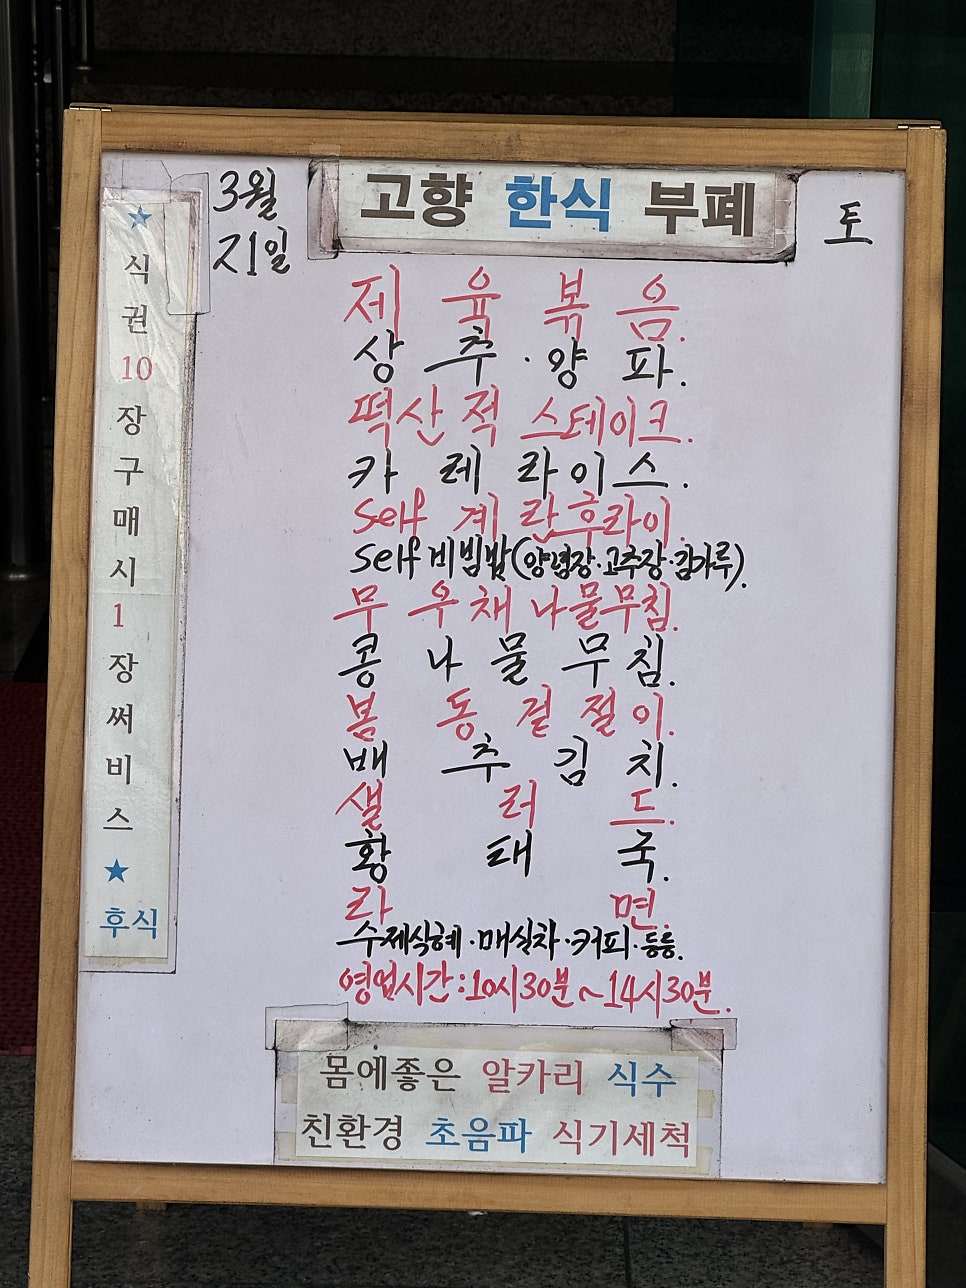 3월
21일
고향 한식 부폐
토
★
식
권
10
장
구
매
시
1
장
써
비
스
★
후식
제육볶음.
상추·양파.
떡산적 스테이크.
카레라이스.
self 계란후라이.
self 비빔밥(양념장·고추장·김가루).
무우채나물무침.
콩나물무침.
봄동겉절이.
배추김치.
샐러드.
황태국.
라면.
수제식혜·매실차·커피·등등.
영업시간:10시30분~14시30분.
몸에좋은 알카리 식수
친환경 초음파 식기세척